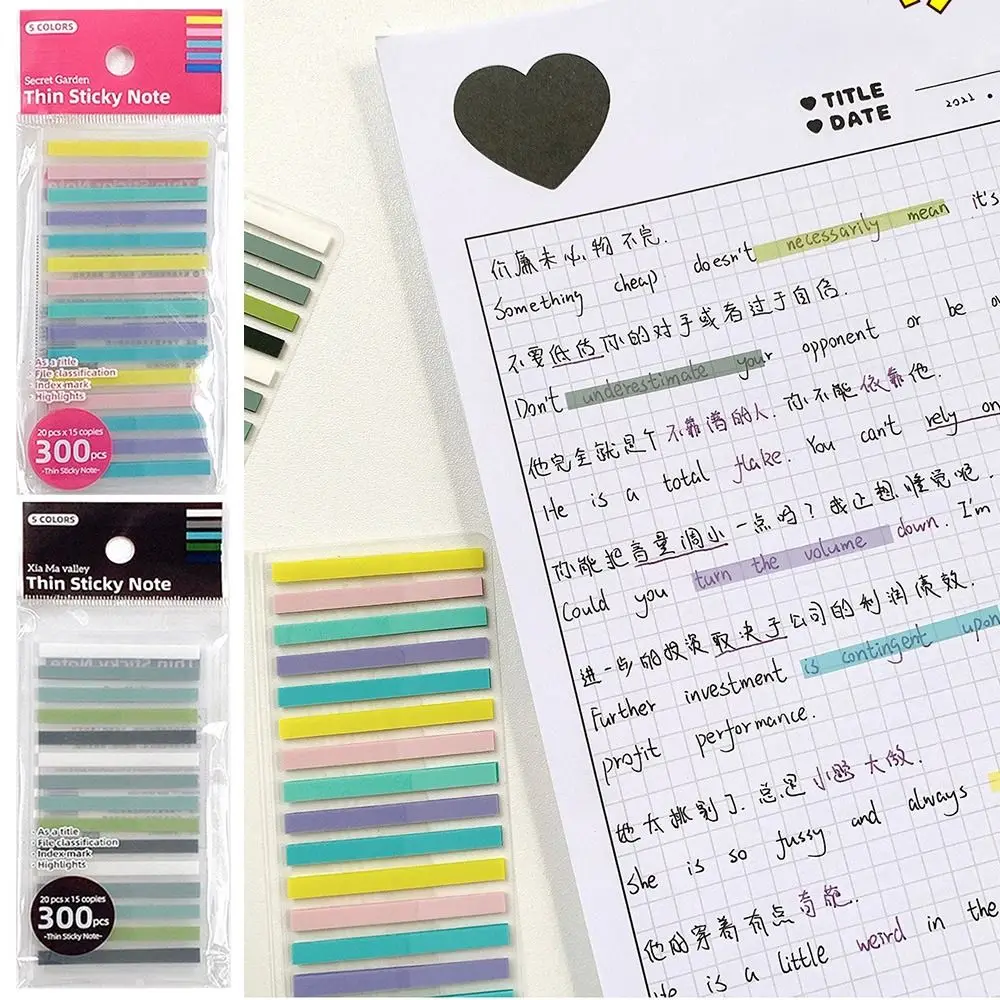 5 COLORS
Secret Garden
Thin Sticky Note
· As a title
· File classification
· Index mark
· Highlights
20 pcs x 15 copies
300pcs
-Thin Sticky Note-
5 COLORS
Xia Ma valley
Thin Sticky Note
Thin Sticky Note
· As a title
· File classification
· Index mark
· Highlights
20 pcs x 15 copies
300pcs
-Thin Sticky Note-
TITLE
DATE 2021 .
你廉未必物不完.
Something cheap doesn't necessarily mean it's
不要低估你的对手或者过于自信.
Don't underestimate your opponent or be
他完全就是个不靠谱的人. 你不能依靠他.
He is a total flake. You can't rely on
你能把音量调小一点吗? 我正想睡觉呢.
Could you turn the volume down. I'm
进一步的投资取决于公司的利润绩效.
Further investment is contingent upon
profit performance.
她太挑剔了. 总是小题大做.
She is so fussy and always
他的穿着有点奇葩.
He is a little weird in the